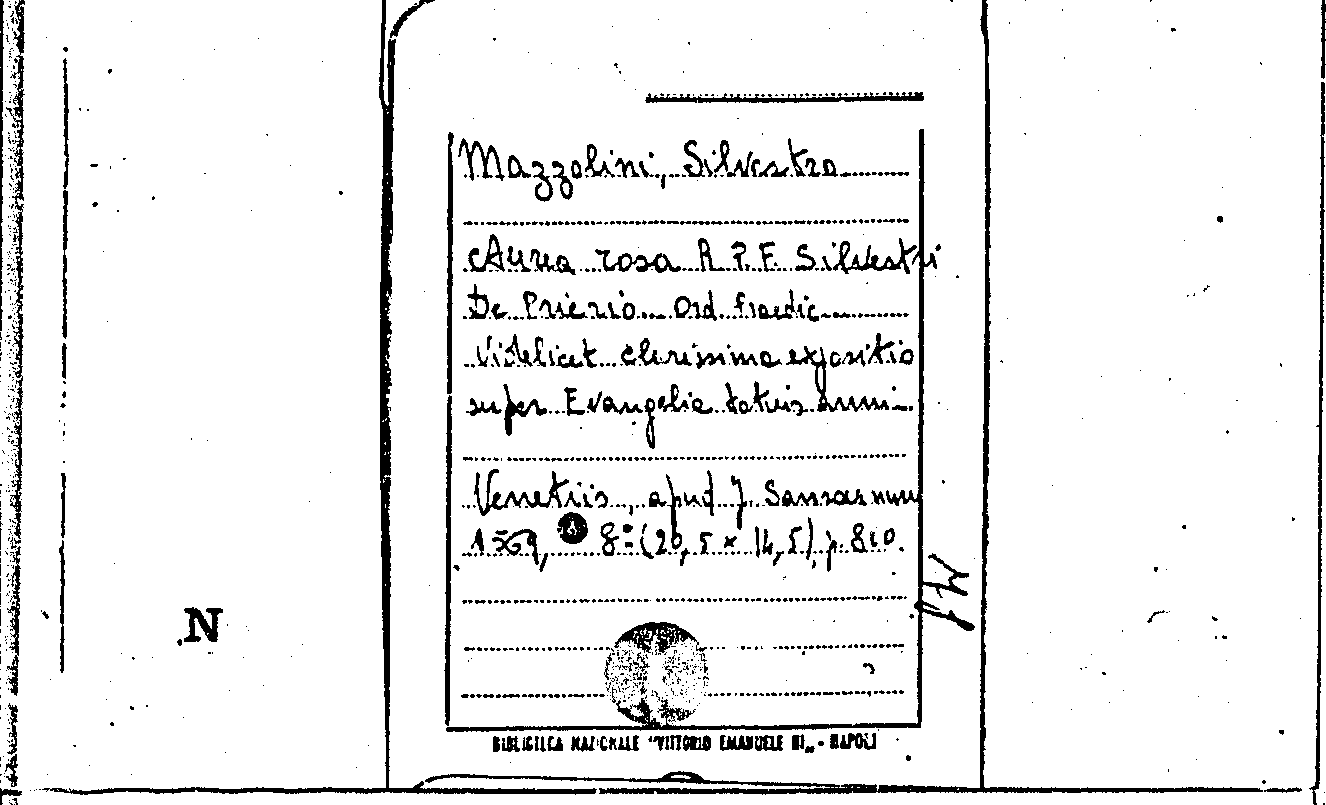 Mazzolini, Silvestro
Aurea rosa R. P. F. Silvestri
De Prierio... Ord. Praedic...
Videlicet clarissima expositio
super Evangelia totius anni...
Venetiis, apud J. Sansovinum
1569, 8° (20,5 × 14,5), p. 810.
N
BIBLIOTECA NAZIONALE "VITTORIO EMANUELE III" - NAPOLI